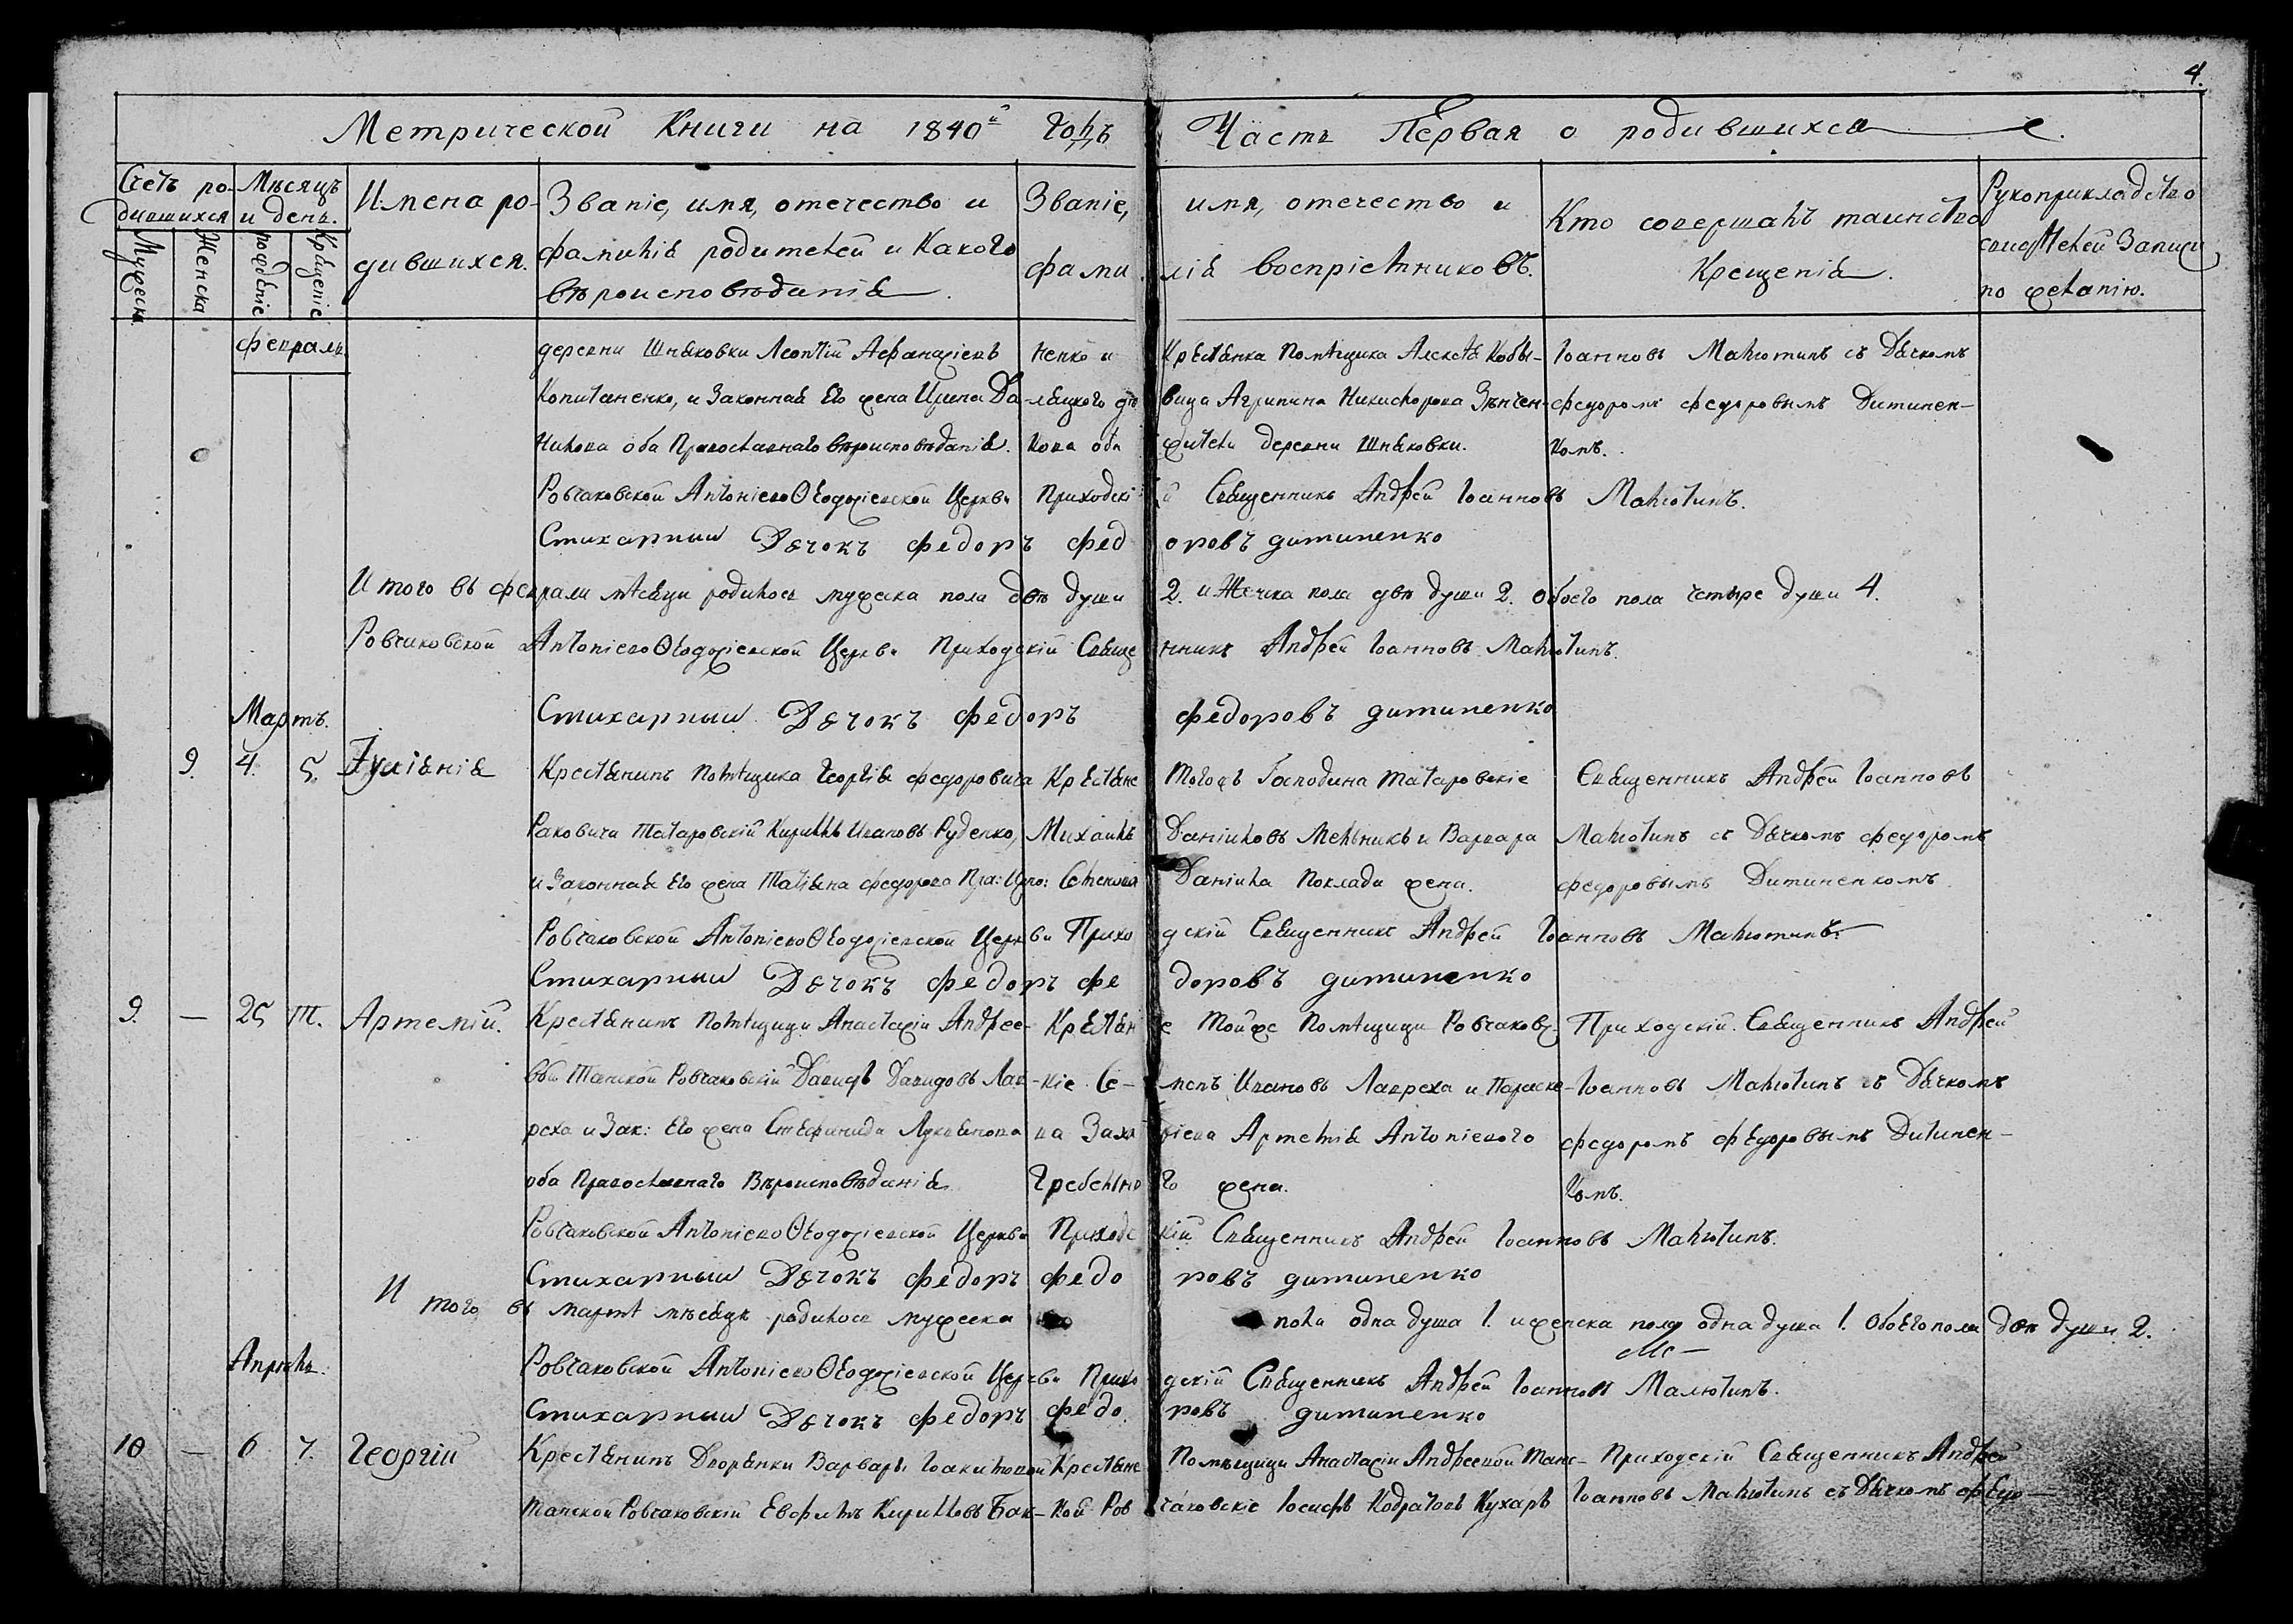 4.
Метрической Книги на 1840й Годъ Часть Первая о родившихся.
Счетъ родившихся
Мѣсяцъ и день.
Имена родившихся.
Званіе, имя, отечество и фамилія родителей и Какого вѣроисповѣданія.
Званіе, имя, отечество и фамилія воспріемниковъ.
Кто совершалъ таинство Крещенія.
Рукоприкладство свидѣтелей Записи по желанію.
Мужеска
Женска
рожденіе
Крещеніе
февраль
деревни Шняковки Леонтій Афанасіевъ
Копитаненко, и Законная Его жена Ирина Да-
нилова оба Православнаго вѣроисповѣданія.
Крестянка Помѣщика
вица Агрипина Никифорова
жители деревни Шняковки.
Іоанновъ Малютинъ съ Дячкомъ
федоромъ федоровымъ Дитинен-
комъ.
Ровчаковской АнтоніевоѲеодосіевской Церкви Приходскій Священникъ Андрей Іоанновъ Малютинъ.
Стихарный Дячокъ федоръ федоровъ дитиненко
И того въ феврали мѣсяци родилось мужеска пола двѣ души 2. и Женска пола двѣ души 2. Обоего пола четыре души 4.
Ровчаковской АнтоніевоѲеодосіевской Церкви Приходскій Священникъ Андрей Іоанновъ Малютинъ.
Мартъ.
Стихарный Дячокъ федоръ федоровъ дитиненко
9. 4. 5. Іуліянія
Крестянинъ Помѣщика Георгія федоровича
Раковича Татаровскій Кириллъ Ивановъ Руденко,
и Законная Его жена Татіяна федорова
Крестяне Тогожъ Господина Татаровскіе
Михаилъ Даніиловъ Мельникъ и Варвара
Даніила Поклади жена.
Священникъ Андрей Іоанновъ
Малютинъ съ Дячкомъ федоромъ
федоровымъ Дитиненкомъ.
Ровчаковской АнтоніевоѲеодосіевской Церкви Приходскій Священникъ Андрей Іоанновъ Малютинъ.
Стихарный Дячокъ федоръ федоровъ дитиненко
9. — 25 Т. Артемій.
Крестянинъ Помѣщици Анастасіи Андрее-
вой Танской Ровчаковскій Давидъ Давидовъ Лав-
реха и Зак: Его жена Стефанида Лукянова
оба Православнаго Вѣроисповѣданія
Крестяне Тойже Помѣщици Ровчаковс-
кіе Се-менъ Ивановъ Лавреха и Параске-
ва Артемія Антоніевого
Гребенного жена.
Приходскій Священникъ Андрей
Іоанновъ Малютинъ съ Дячкомъ
федоромъ федоровымъ Дитинен-
комъ.
Ровчаковской АнтоніевоѲеодосіевской Церкви Приходскій Священникъ Андрей Іоанновъ Малютинъ.
Стихарный Дячокъ федоръ федоровъ дитиненко
И того въ мартѣ мѣсяцѣ родилось мужеска пола одна душа 1. и женска пола одна душа 1. Обоего пола двѣ души 2.
Апрѣль.
Ровчаковской АнтоніевоѲеодосіевской Церкви Приходскій Священникъ Андрей Іоанновъ Малютинъ.
Стихарный Дячокъ федоръ федоровъ дитиненко
10 — 6 7. Георгій
Крестянинъ Дворянки Варвары Іоакимовой
Танской Ровчаковскій Евфимъ Кирилловъ Бак-
Крестяне Помѣщици Анастасіи Андреевой Танс-
кой Ровчаковскіе Іосифъ Кодратовъ Кухаръ
Приходскій Священникъ Андрей
Іоанновъ Малютинъ съ Дячкомъ федо-